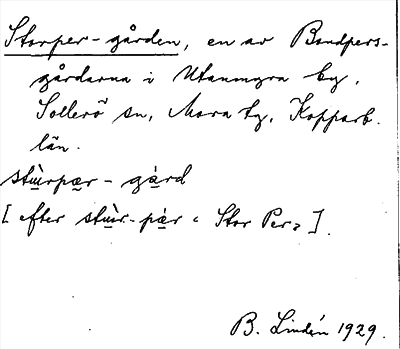 Storper-gården, en av Bondpers-
gårdarna i Utanmyra by,
Sollerö sn, Mora tg, Kopparb.
län.
stùrpær-gàrd
[efter stùr-pær "Stor Per"].
B. Lindén 1929.